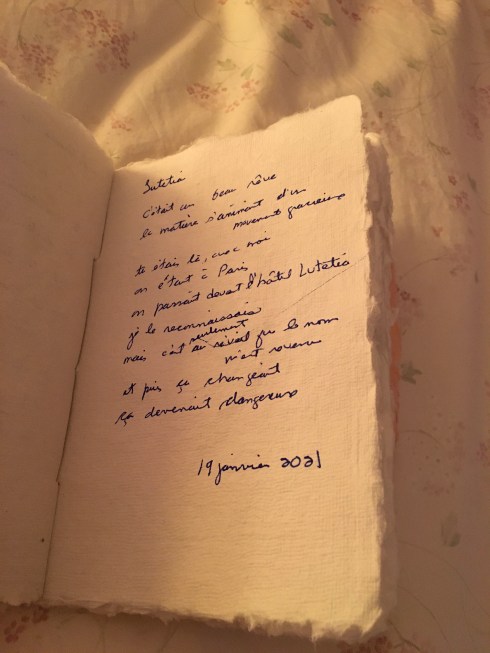 Lutetia
c'était un beau rêve
la matière s'animant d'un
mouvement gracieux
tu étais là, avec moi
on était à Paris
on passait devant l'hôtel Lutetia
je le reconnaissais
mais c'est seulement au réveil que le nom
m'est revenu
et puis ça changeait
ça devenait dangereux
19 janvier 2021